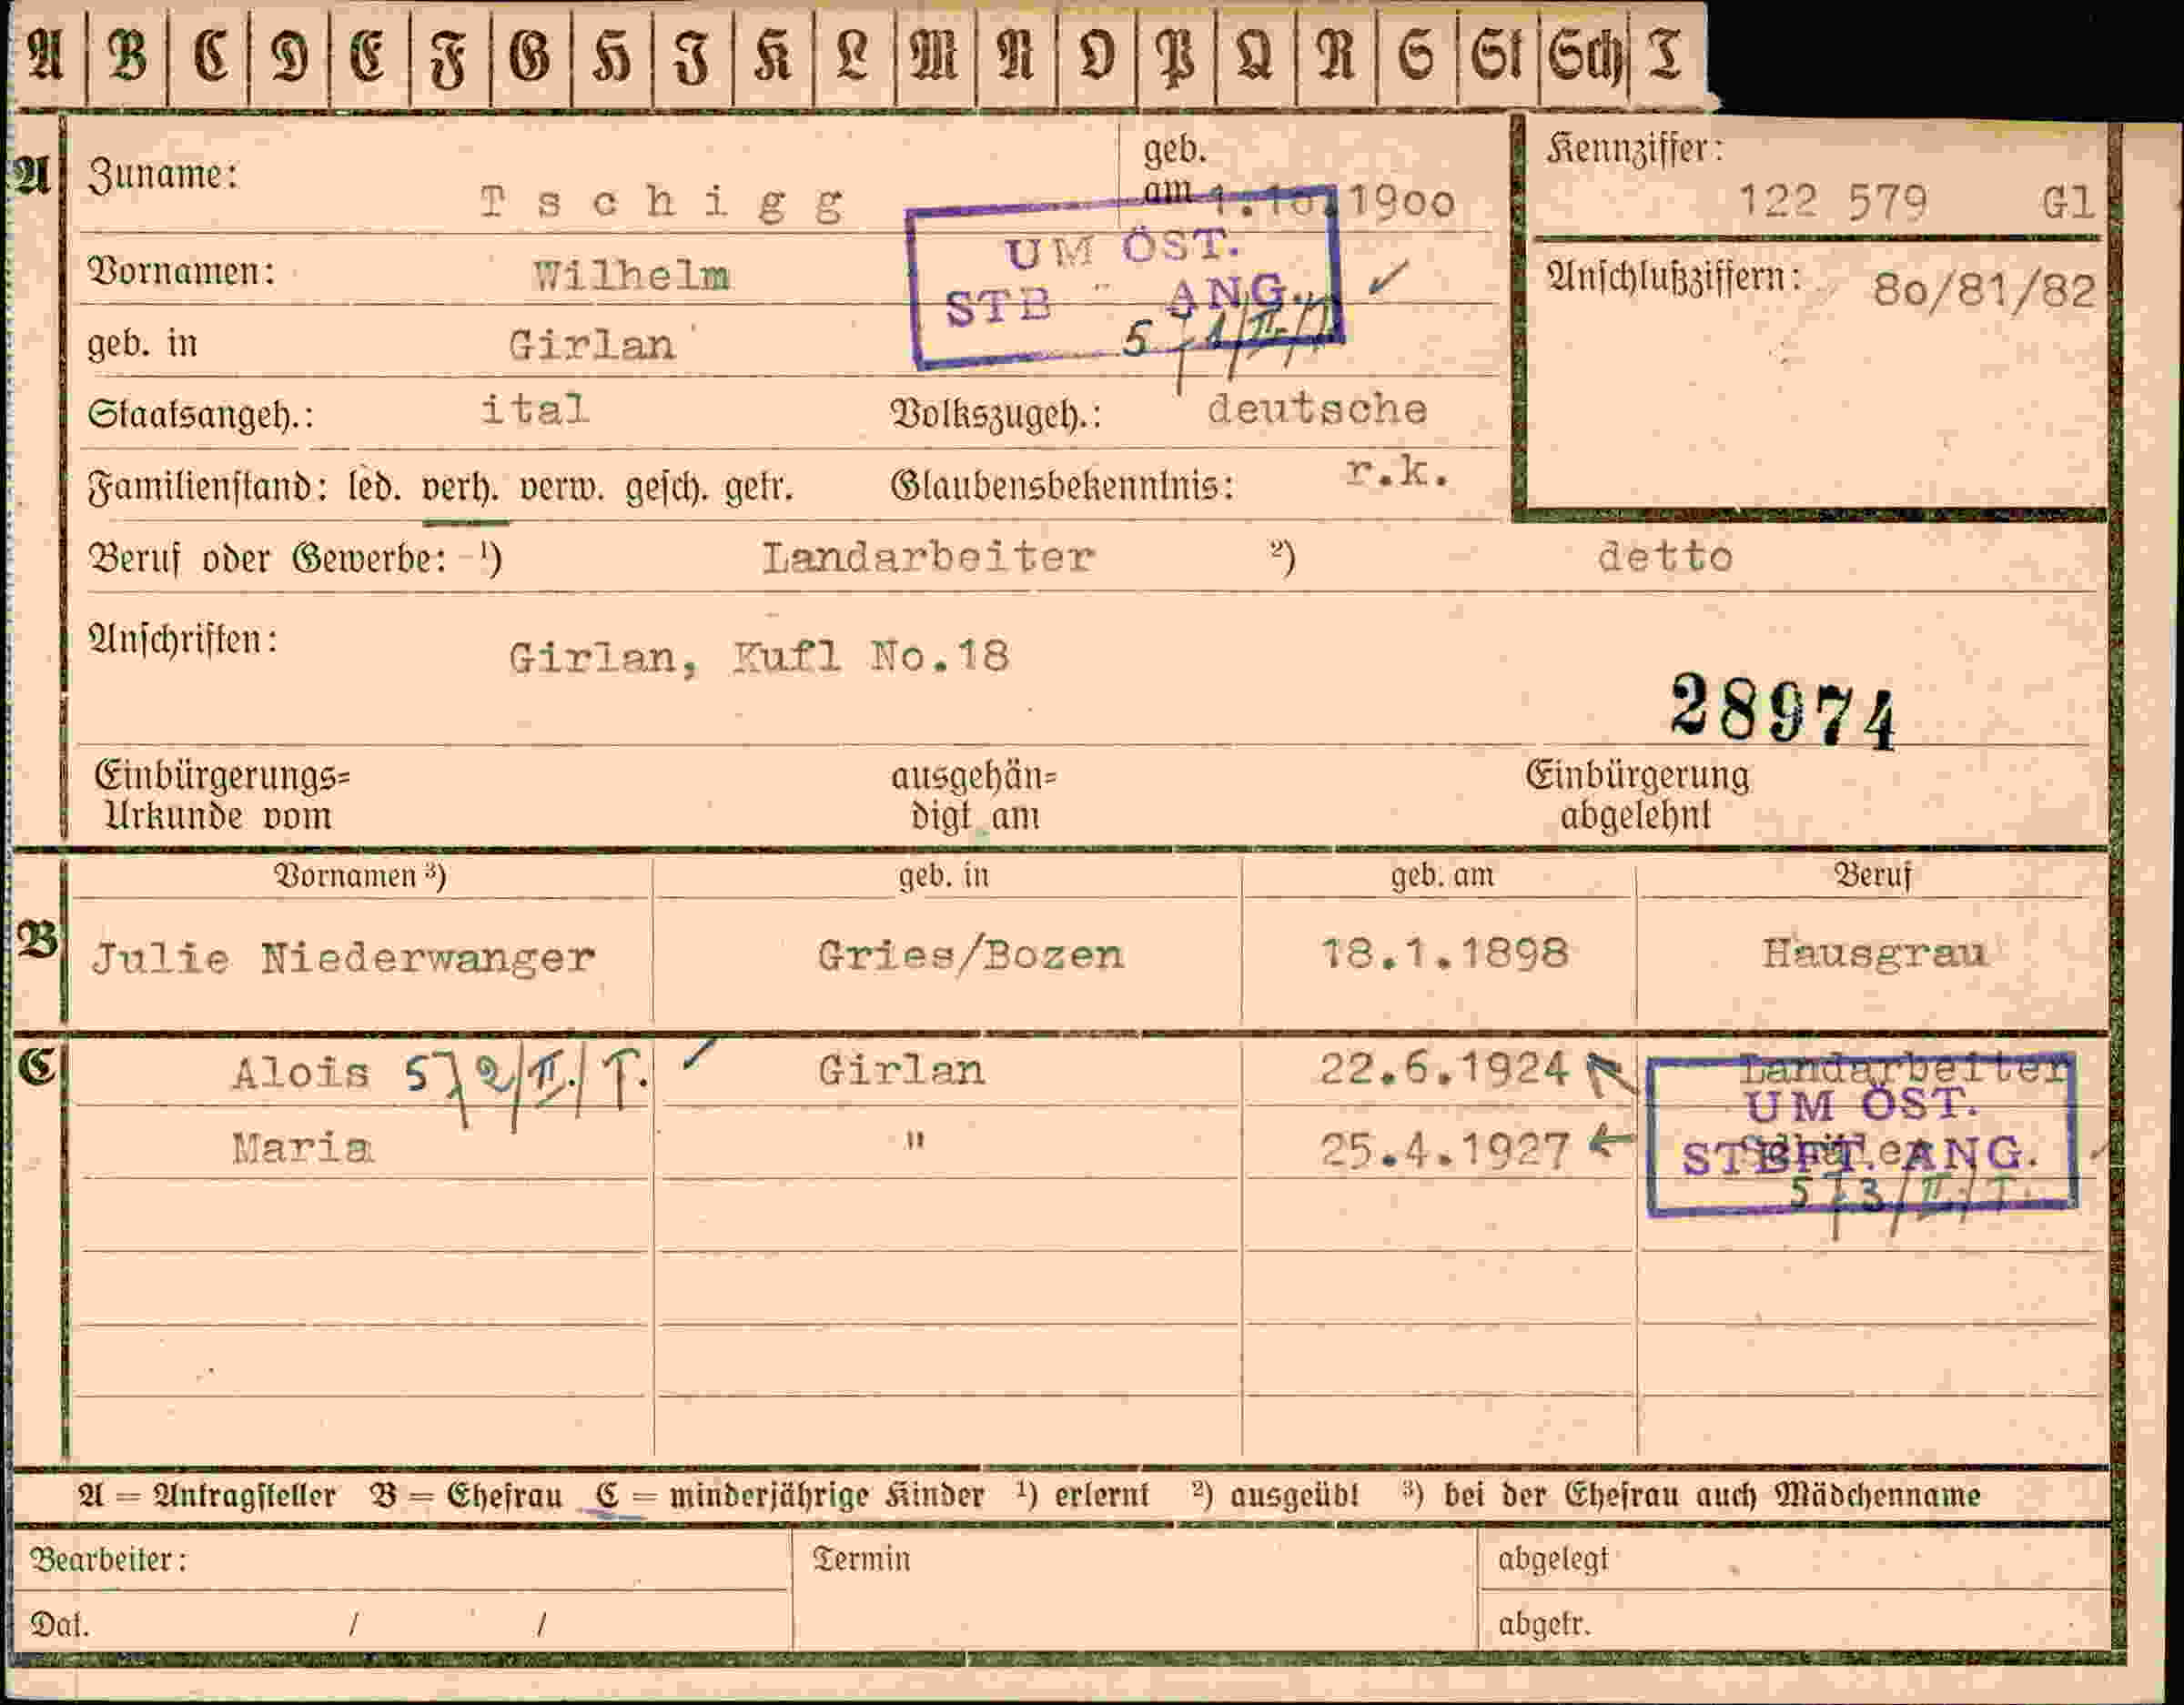 A B C D E F G H I K L M N O P Q R S St Sch T
A Zuname: Tschigg geb. am 1.10.1900 Kennziffer: 122 579 Gl
UM ÖST.
Vornamen: Wilhelm Anschlußziffern: 80/81/82
STB ANG.
geb. in Girlan 5
Staatsangeh.: ital Volkszugeh.: deutsche
Familienstand: led. verh. verw. gesch. getr. Glaubensbekenntnis: r.k.
Beruf oder Gewerbe: ¹) Landarbeiter ²) detto
Anschriften: Girlan, Kufl No.18
28974
Einbürgerungs= ausgehän= Einbürgerung
Urkunde vom digt am abgelehnt
Vornamen ³) geb. in geb. am Beruf
B Julie Niederwanger Gries/Bozen 18.1.1898 Hausgrau
C Alois 572/II./T. Girlan 22.6.1924 Landarbeiter
UM ÖST.
Maria " 25.4.1927
STBFT. ANG.
573/II/T
A = Antragsteller B = Ehefrau C = minderjährige Kinder ¹) erlernt ²) ausgeübt ³) bei der Ehefrau auch Mädchenname
Bearbeiter: Termin abgelegt
Dat. / / abgetr.